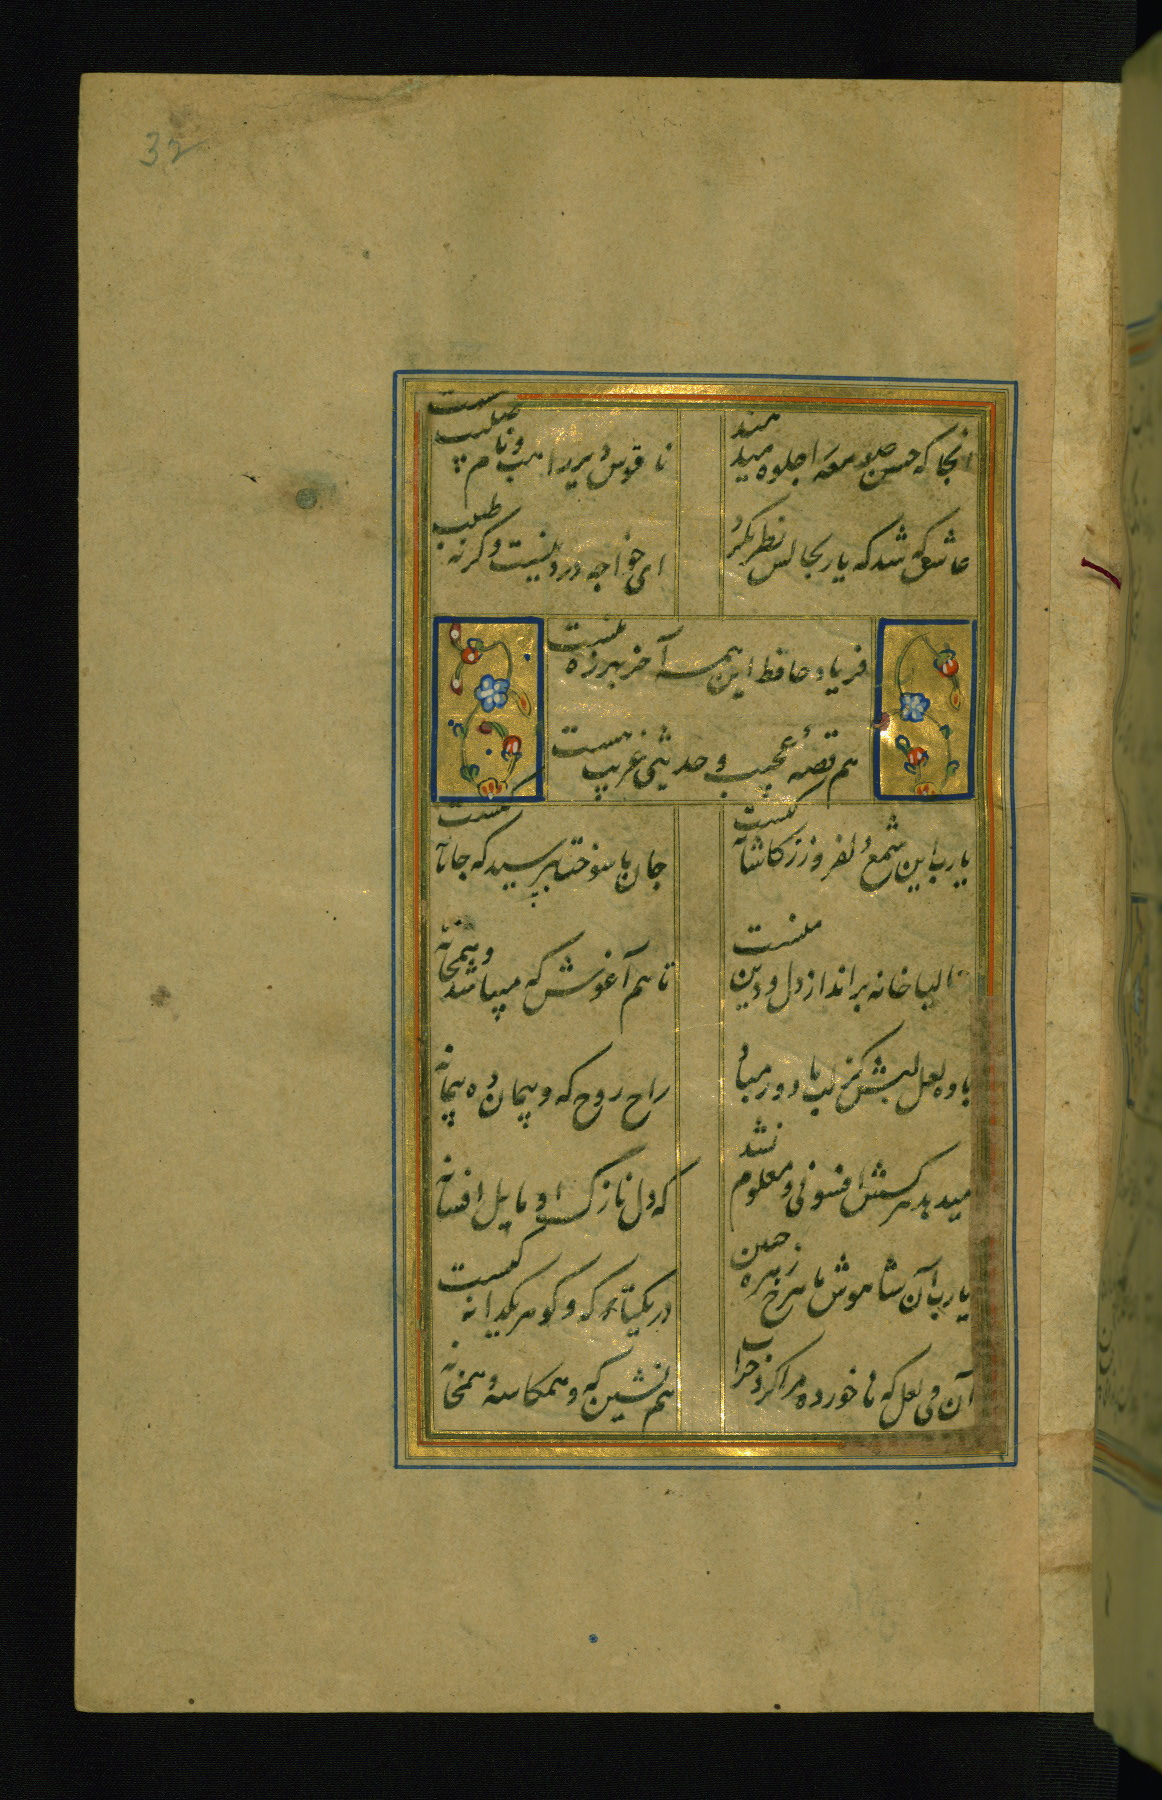 32
انجا که حسن صومعه را جلوه میدهند
ناقوس دیر راهب و نام صلیب هست
عاشق که شد که یار بحالش نظر نکرد
ای خواجه درد نیست وگرنه طبیب
فریاد حافظ این همه آخر بهرزه نیست
هم قصهٔ عجیب و حدیثی غریب هست
یارب این شمع دلفروز ز کاشانه کیست
جان ما سوخت بپرسید که جانانه کیست
حالیا خانه برانداز دل و دین منست
تا هم آغوش که میباشد و همخانه
باده لعل لبش کز لب ما دور مباد
راح روح که و پیمان ده پیمانه
میدهد هرکسش افسونی و معلوم نشد
که دل نازک او مایل افسانه
یارب آن شاهوش ماه رخ زهره جبین
در یکتای که و گوهر یکدانه کیست
آن می لعل که ناخورده مرا کرد خراب
هم نشین که و همکاسه و همخانه